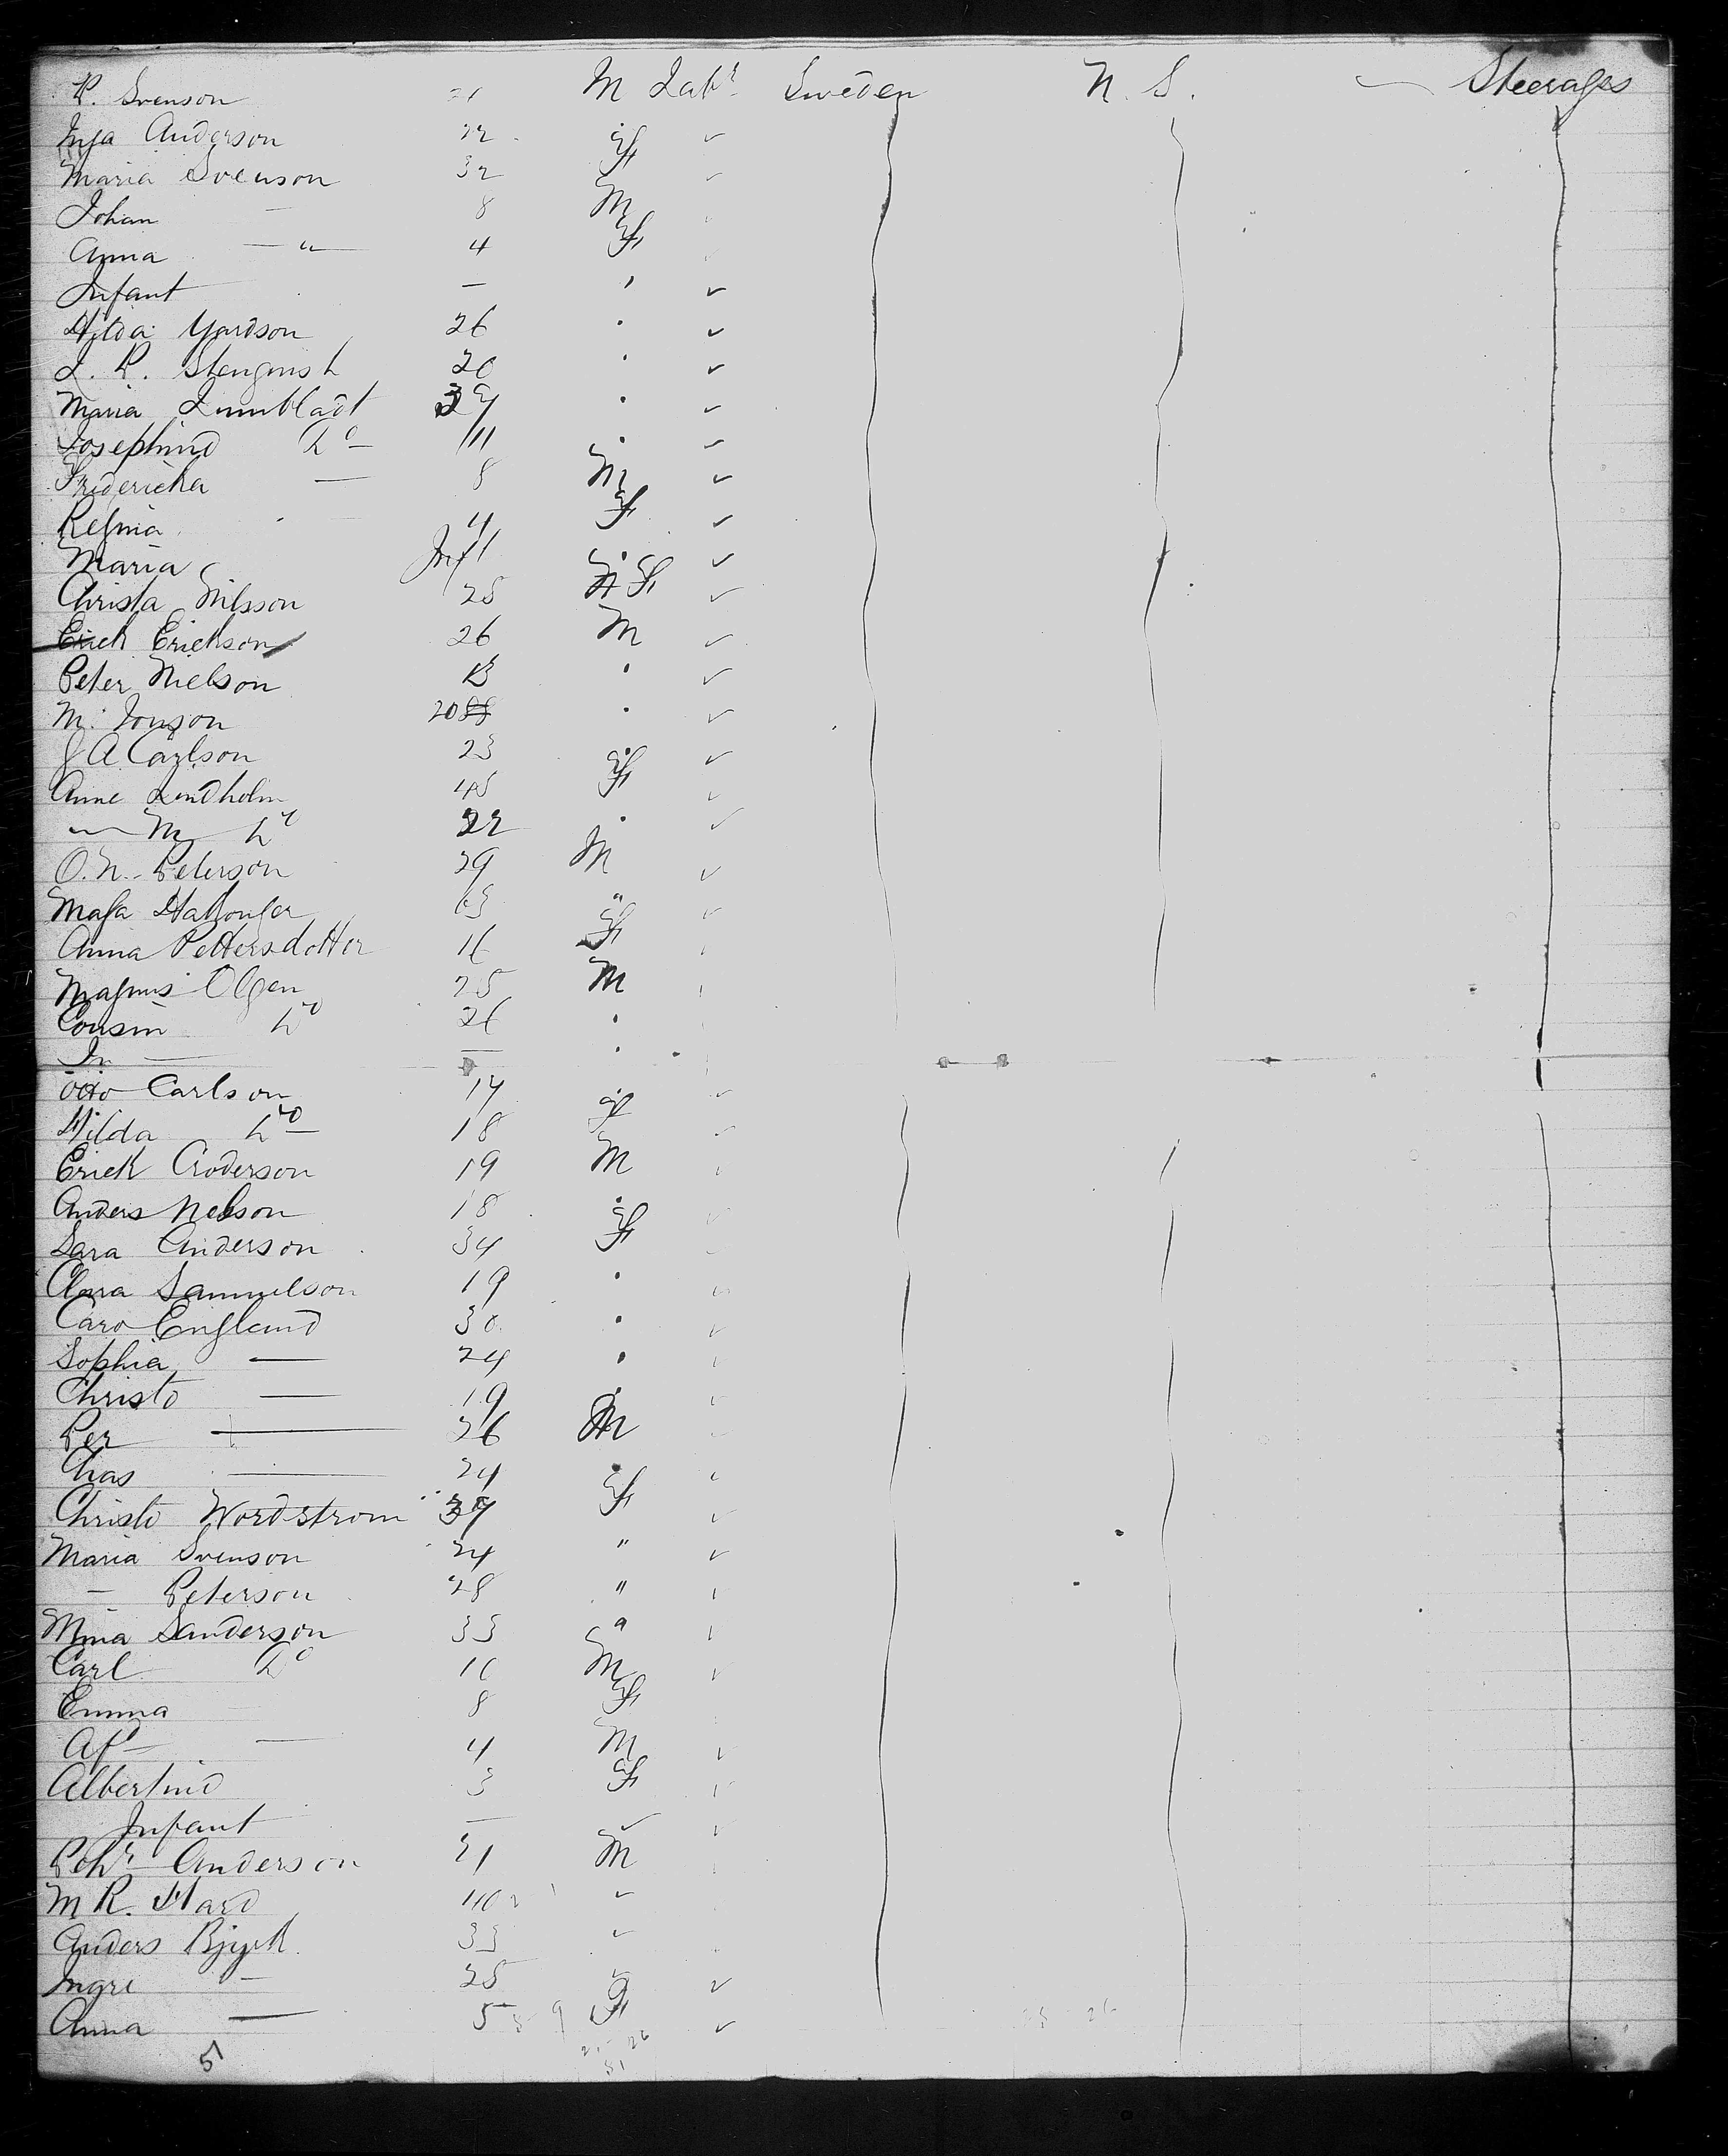 P. Svenson 21 M Labr. Sweden N. S. — Steerages
Inga Anderson 22 . F ✓
Maria Svenson 32 ✓
Johan — 8 M
Anna — " — 4 F
Infant — ' ✓
Hilda Yardson 26 . ✓
L. P. 20 . ✓
Maria . ✓
Josephine Do — 11 . ✓
Fridericka — 8 M ✓
Regina 4 F ✓
Maria Inft . ✓
Christa Nilsson 25 F ✓
Erick Erickson 26 M ✓
Peter Nielson . ✓
M. Jonson 20 . ✓
J A Carlson 23 . ✓
Anne Lindholm 45 F ✓
— M Do 22 . ✓
O. N. Peterson 29 M ✓
Maja 63 " ✓
Anna Pettersdotter 16 F
Magnus Olsen 25 M
Cousin Do 26 .
In — — .
Otto Carlson 17 . ✓
Hilda Do — 18 F ✓
Erick Anderson 19 M
Anders Nelson 18 . ✓
Sara Anderson 34 F
Clara Samuelson 19 . ✓
Caro England 30 . ✓
Sophia — 24 .
Christo — 19 . ✓
Per — 26 M
Chas — 24 . ✓
Christo Nordstrom F ✓
Maria Svenson 24 " ✓
— Peterson 28 "
Mina Sanderson 33 "
Carl Do 10 M ✓
Emma 8 F
Af — — 4 M ✓
Albertine 3 F
Infant — ✓
Anderson 21 M
M R. Hard 40 ✓
Anders Bjyrk 33 ✓
Ingri — 25 ✓ ✓
Anna — 5 F ✓
51